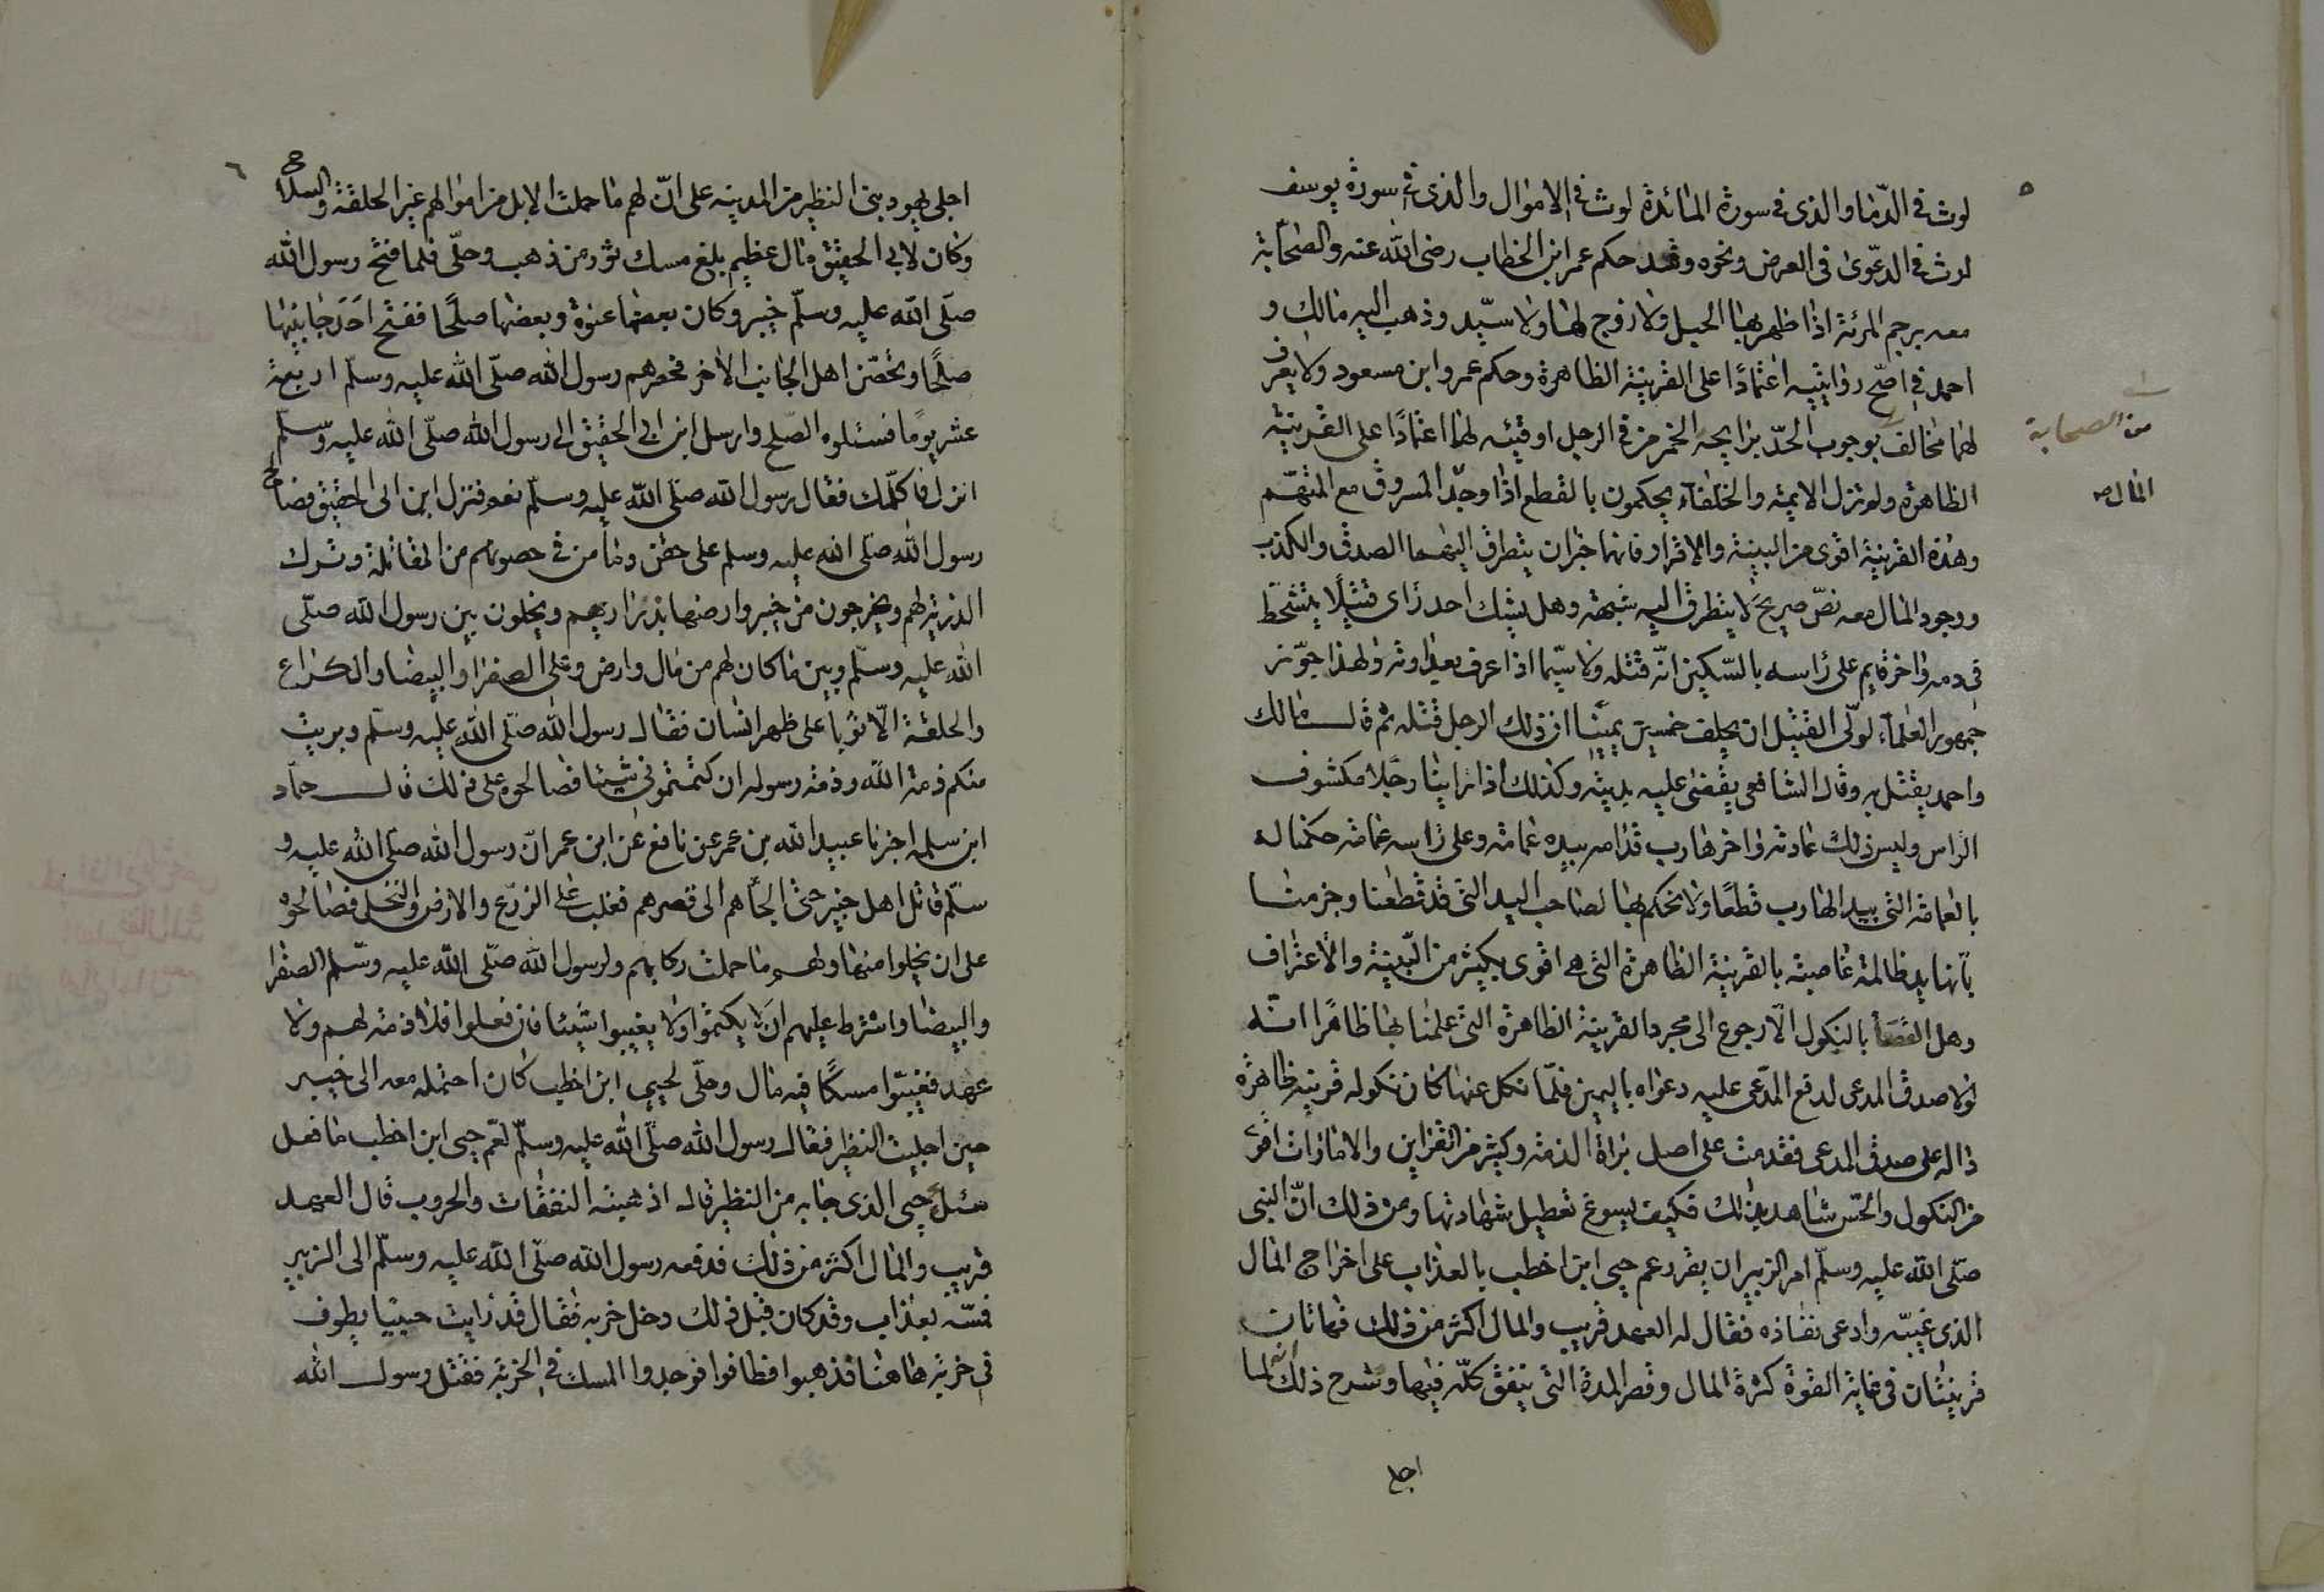 ٥
لوث في الدّما والذى في سورة المائدة لوث في الاموال والذى في سورة يوسف
لوث في الدعوىٰ في العرض ونحوه وقد حكم عمر ابن الخطاب رضى الله عنه والصّحابة
معه برجم المرئة اذا ظهر بها الحبل ولا زوج لها ولا سيّد وذهب اليه مالك و
احمد في اصّح روايتيه اعتمادًا على القرينة الظاهرة وحكم عمر وابن مسعود ولا يعرف
لهما مخالف بوجوب الحدّ برايحة الخمر من في الرجل او قيئه لهما اعتمادًا على القرينة
من الصحابة
الظاهرة ولم تزل الايمة والخلفآء يحكمون بالقطع اذا وجد المسروق مع المتهّم
المال صه
وهذه القرينة اقوى من البينة والاقرار فانهما خبران يتطرق اليهما الصدق والكذب
ووجود المال معه نصّ صريح لا يتطرق اليه شبهة وهل يشك احد رأى قتيلًا يتشحّط
في دمه واخر قايم على راسه بالسّكين انّه قتله ولا سيّما اذا عرف بعداوته ولهذا جوّز
جمهور العلمآء لولّى القتيل ان يحلف خمسين يمينًا ان ذلك الرجل قتله ثم قال مالك
واحمد يقتل به وقال الشافعى يقضى عليه بديته وكذلك اذا راينا رجلا مكشوف
الراس وليس ذلك عادته واخر هارب قدامه بيده عمامة وعلى راسه عمامة حكمنا له
بالعمامة التى بيد الهارب قطعًا ولا نحكم بها لصاحب اليد التى قد قطعنا وجزمنا
بانها يد ظالمة غاصبة بالقرينة الظاهرة التى هى اقوى بكثير من البّينة والاعتراف
وهل القضآ بالنكول الّا رجوع الى مجرد القرينة الظاهرة التى علمنا بها ظاهرًا انّه
لولا صدق المدعى لدفع المدّعى عليه دعواه باليمين فلمّا نكل عنها كان نكوله قرينة ظاهرة
دالة على صدق المدعى فقدمت على اصل براة الذمة وكثير من القراين والامارات اقوى
من النكول والحّس شاهد بذلك فكيف يسوغ تعطيل شهادتها ومن ذلك انّ النبى
صلّى الله عليه وسلّم امر الزبير ان يقرر عم حيى ابن اخطب بالعذاب على اخراج المال
الذى غيبّه وادعى نفاذه فقال له العهد قريب والمال اكثر من ذلك فهاتان
قرينتان في غاية القوة كثرة المال وقصر المدة التى ينفق كلّه فيها وشرح ذلك انّه لما
اجلى
٦
اجلى يهود بنى النظير من المدينه على انّ لهم ما حملت الابل من اموالهم غير الحلقة والسلاح
وكان لابي الحقيق مال عظيم بلغ مسك ثور من ذهب وحلّى فلما فتح رسول الله
صلّى الله عليه وسلّم خيبر وكان بعضها عنوة وبعضها صلحًا ففتح احد جانبيها
صلحًا وتحصّن اهل الجانب الاخر فحصرهم رسول الله صلّى الله عليه وسلّم اربعة
عشر يومًا فسئلوه الصّلح وارسل ابن ابى الحقيق الى رسول الله صلّى الله عليه وسّلم
انزل فاكلّمك فقال رسول الله صلّى الله عليه وسلّم نعم فنزل ابن ابى الحقيق فصالح
رسول الله صلّى الله عليه وسلم على حقن دمآ من في حصونهم من المقاتلة وترك
الذرية لهم ويخرجون من خيبر وارضها بذراريهم ويخلون بين رسول الله صلّى
الله عليه وسلّم وبين ما كان لهم من مال وارض وعلى الصفرا والبيضا والكراع
والحلقة الّا ثوبًا على ظهر انسان فقال رسول الله صلّى الله عليه وسلّم وبريت
منكم ذمة الله وذمة رسوله ان كتمتمونى شيئا فصالحوه على ذلك قال حمّاد
ابن سلمه اخبرنا عبيد الله بن عمر عن نافع عن ابن عمر انّ رسول الله صلّى الله عليه و
سلّم قاتل اهل خيبر حتى الجأهم الى قصرهم فغلب على الزرع والارض والنخل فصالحوه
على ان يجلوا منها ولهم ما حملت ركابهم ولرسول الله صلّى الله عليه وسّلم الصفرا
والبيضا واشترط عليهم ان لا يكتموا ولا يغيبوا شيئا فان فعلوا فلا ذمة لهم ولا
عهد فغيّبوا مسكًا فيه مال وحلّى لحيى ابن اخطب كان احتمله معه الى خيبر
حين اجليت النظير فقال رسول الله صلّى الله عليه وسلّم لعّم حيى ابن اخطب ما فعل
مسك حيى الذى جا به من النظير قال اذهبته النفقات والحروب قال العهد
قريب والمال اكثر من ذلك فدفعه رسول الله صلّى الله عليه وسلّم الى الزبير
فمسّه بعذاب وقد كان قبل ذلك دخل خربه فقال قد رايت حييّا يطوف
في خربة هاهنا فذهبوا فطافوا فوجدوا المسك في الخربة فقتل رسول الله